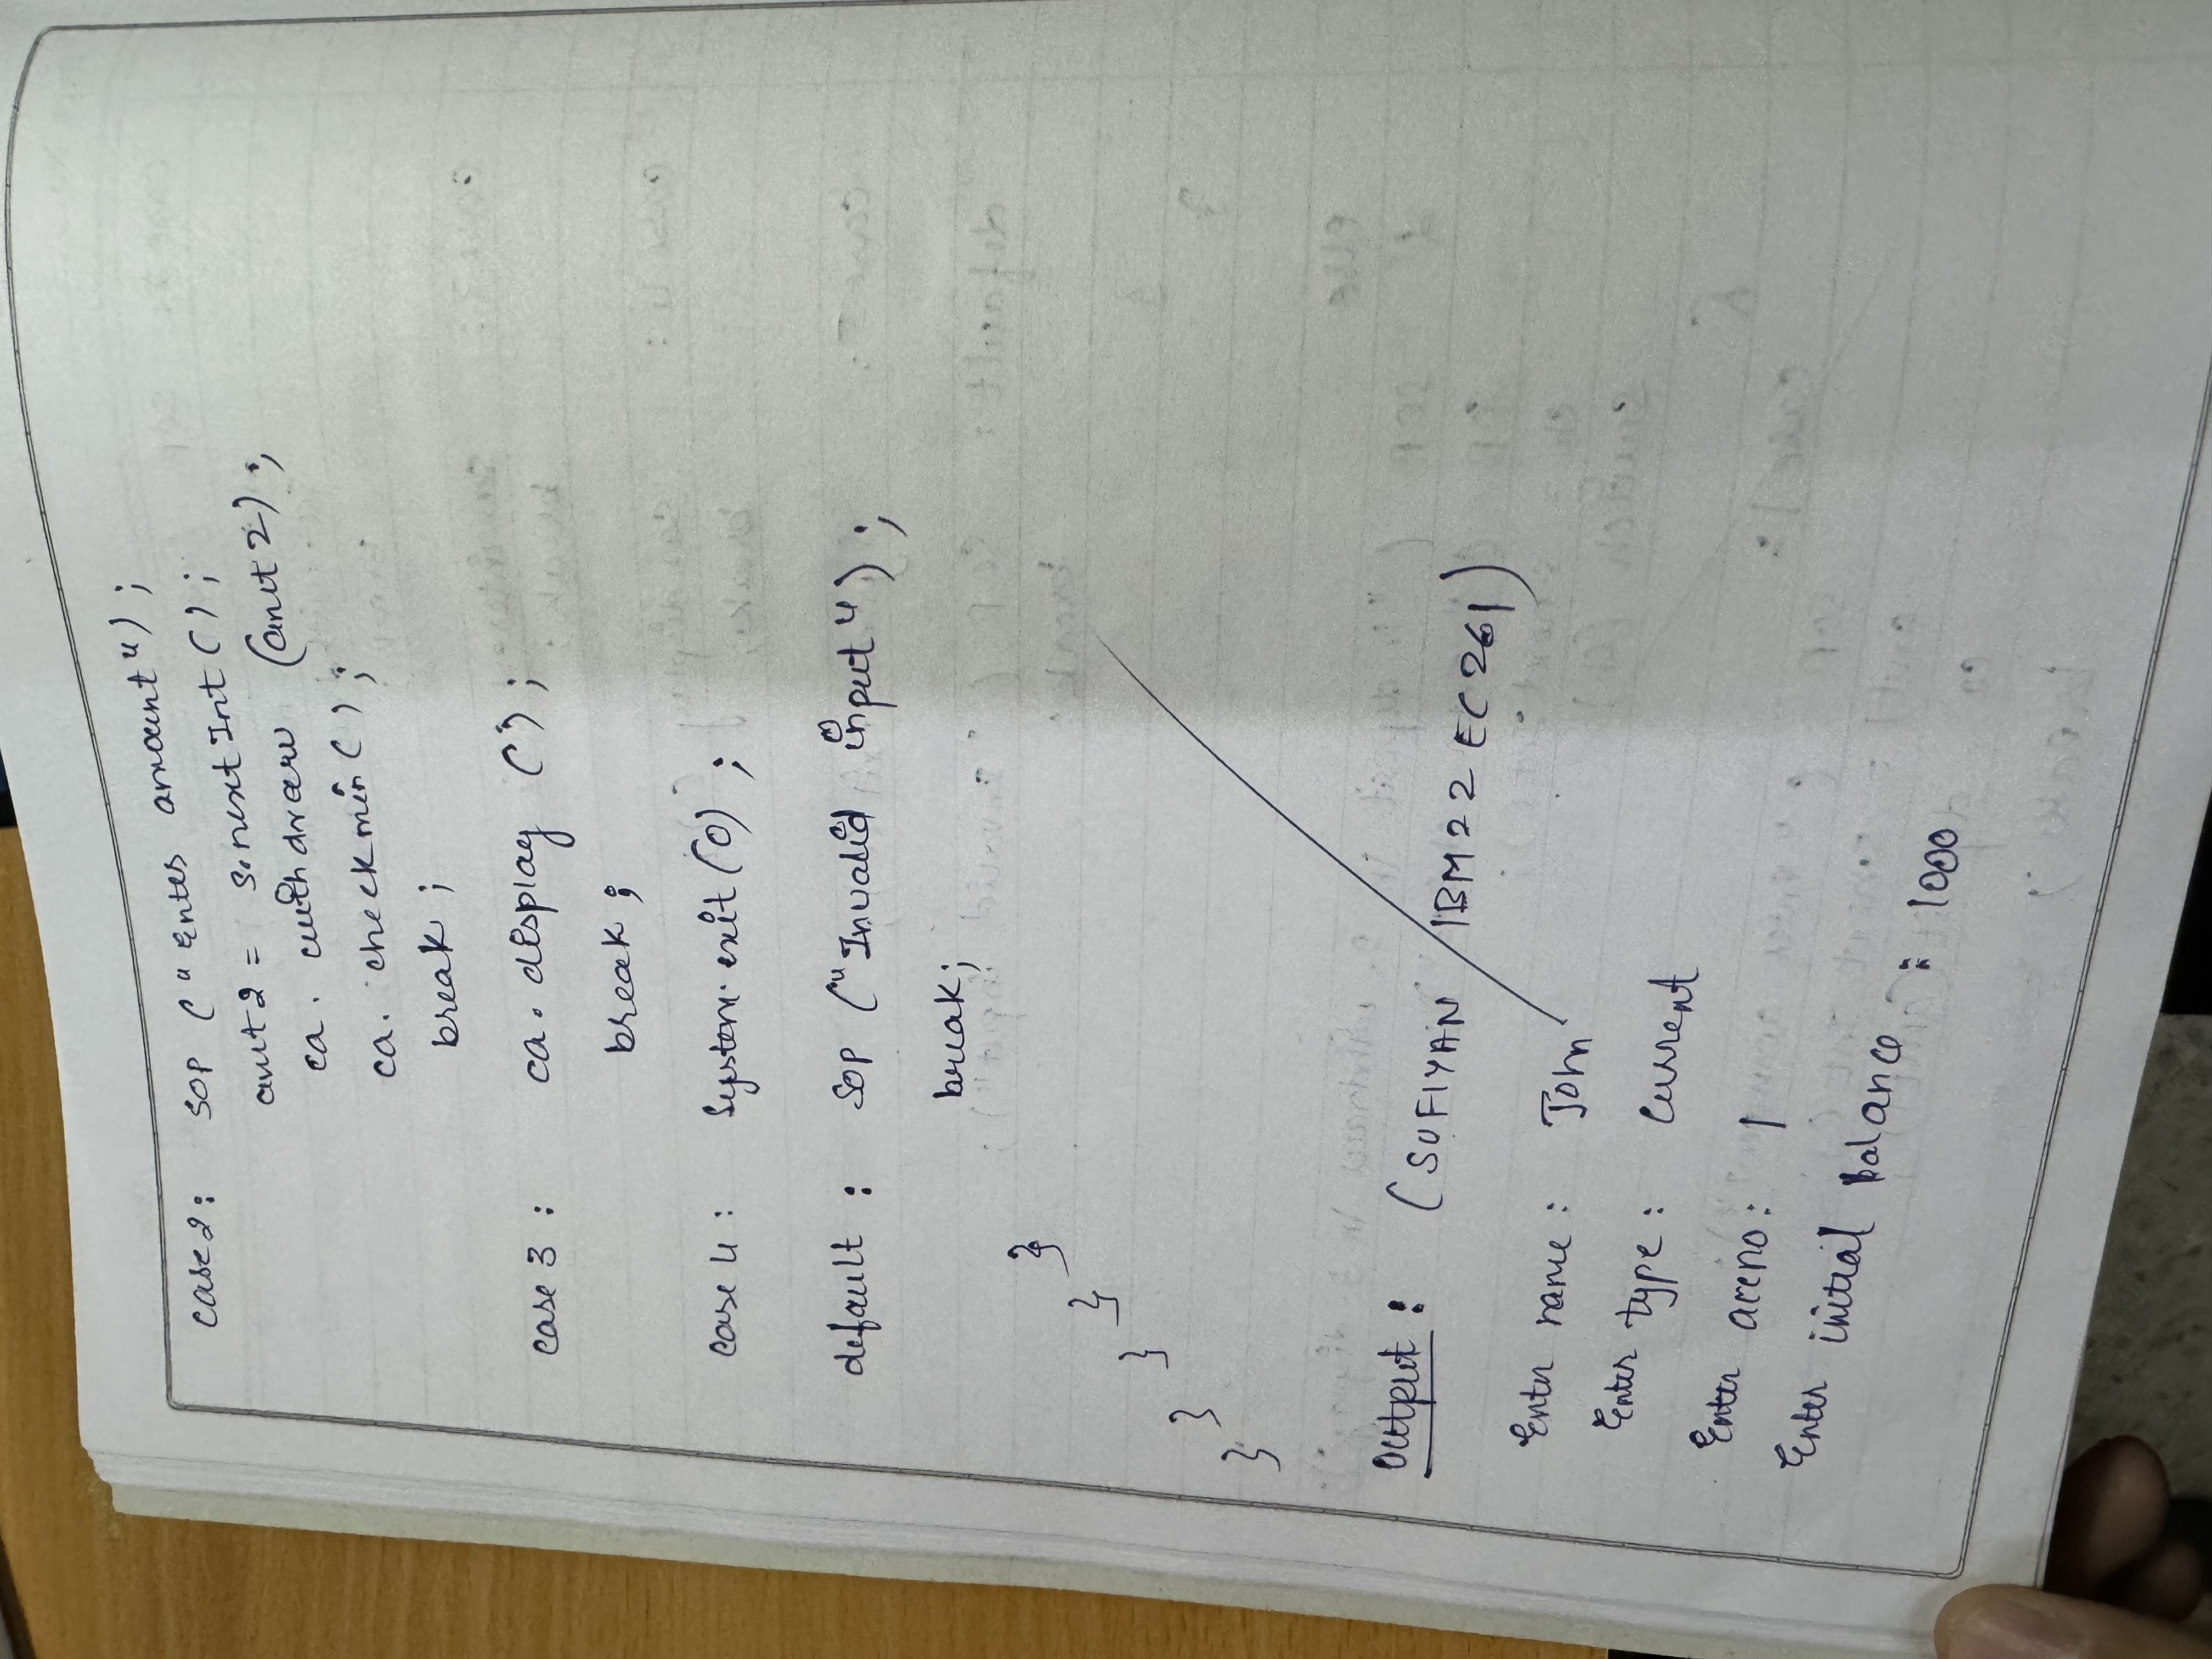 case 2: SOP ("Enter amount");
amt 2 = s.nextInt();
ca. withdraw (amt 2);
ca. checkmin();
break;
case 3: ca. display ();
break;
case 4: System.exit(0);
default: SOP ("Invalid input");
break;
}
}
}
}
}
Output: (SUFIYAN 1BM22EC261)
Enter name: John
Enter type: Current
Enter accno: 1
Enter initial balance : 1000